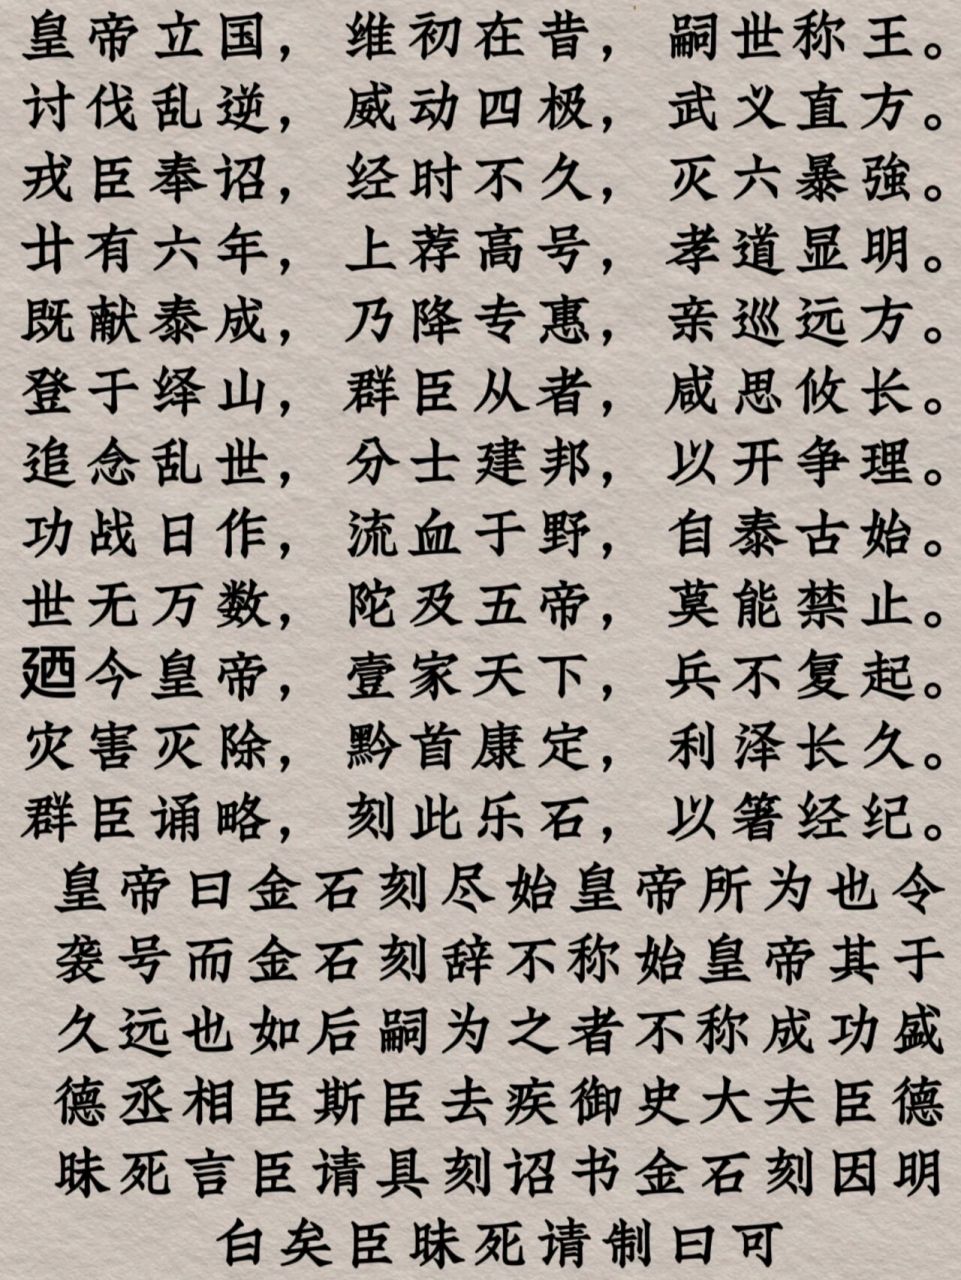 皇帝立国，维初在昔，嗣世称王。
讨伐乱逆，威动四极，武义直方。
戎臣奉诏，经时不久，灭六暴強。
廿有六年，上荐高号，孝道显明。
既献泰成，乃降专惠，亲巡远方。
登于绎山，群臣从者，咸思攸长。
追念乱世，分士建邦，以开争理。
功战日作，流血于野，自泰古始。
世无万数，陀及五帝，莫能禁止。
廼今皇帝，壹家天下，兵不复起。
灾害灭除，黔首康定，利泽长久。
群臣诵略，刻此乐石，以箸经纪。
皇帝曰金石刻尽始皇帝所为也令
袭号而金石刻辞不称始皇帝其于
久远也如后嗣为之者不称成功盛
德丞相臣斯臣去疾御史大夫臣德
昧死言臣请具刻诏书金石刻因明
白矣臣昧死请制曰可